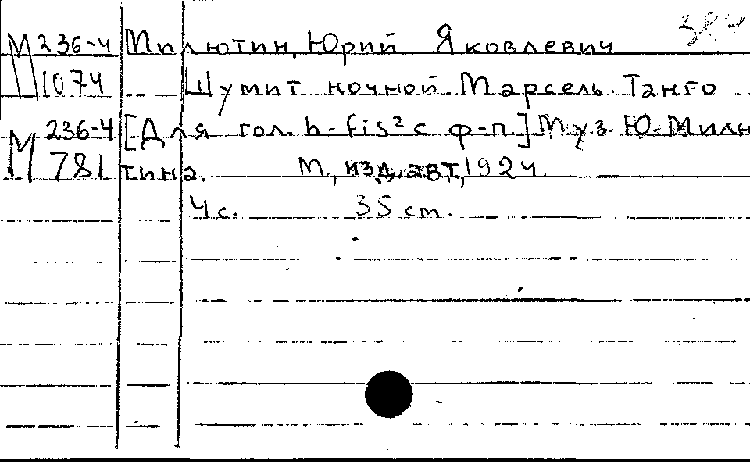 М 236-4 Милютин, Юрий Яковлевич
1074 Шумит ночной Марсель. Танго
М 236-4 [Для гол. h-fis² с ф-п.] Муз. Ю. Милю
781 тина. М., изд. авт., 1924.
4 с. 35 cm.